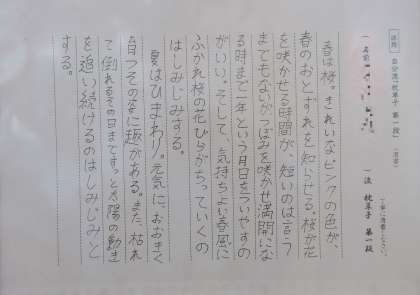 自分流「枕草子 第一段」(清書)
丁寧に清書ください。
名前
流 枕草子 第一段
春は桜。きれいなピンクの色が、
春のおとずれを知らせる。桜が花
を咲かせる時間が、短いのは言う
までもないがつぼみを咲かせ満開にな
る時まで一年という月日をついやすの
がいい。そして、気持ちよい春風に
ふかれ桜の花びらがちっていくの
はしみじみする。
夏はひまわり。元気に、おおきく
育つその姿に趣がある。また、枯れ
て倒れるその日まですっと太陽の動き
を追い続けるのはしみじみと
する。